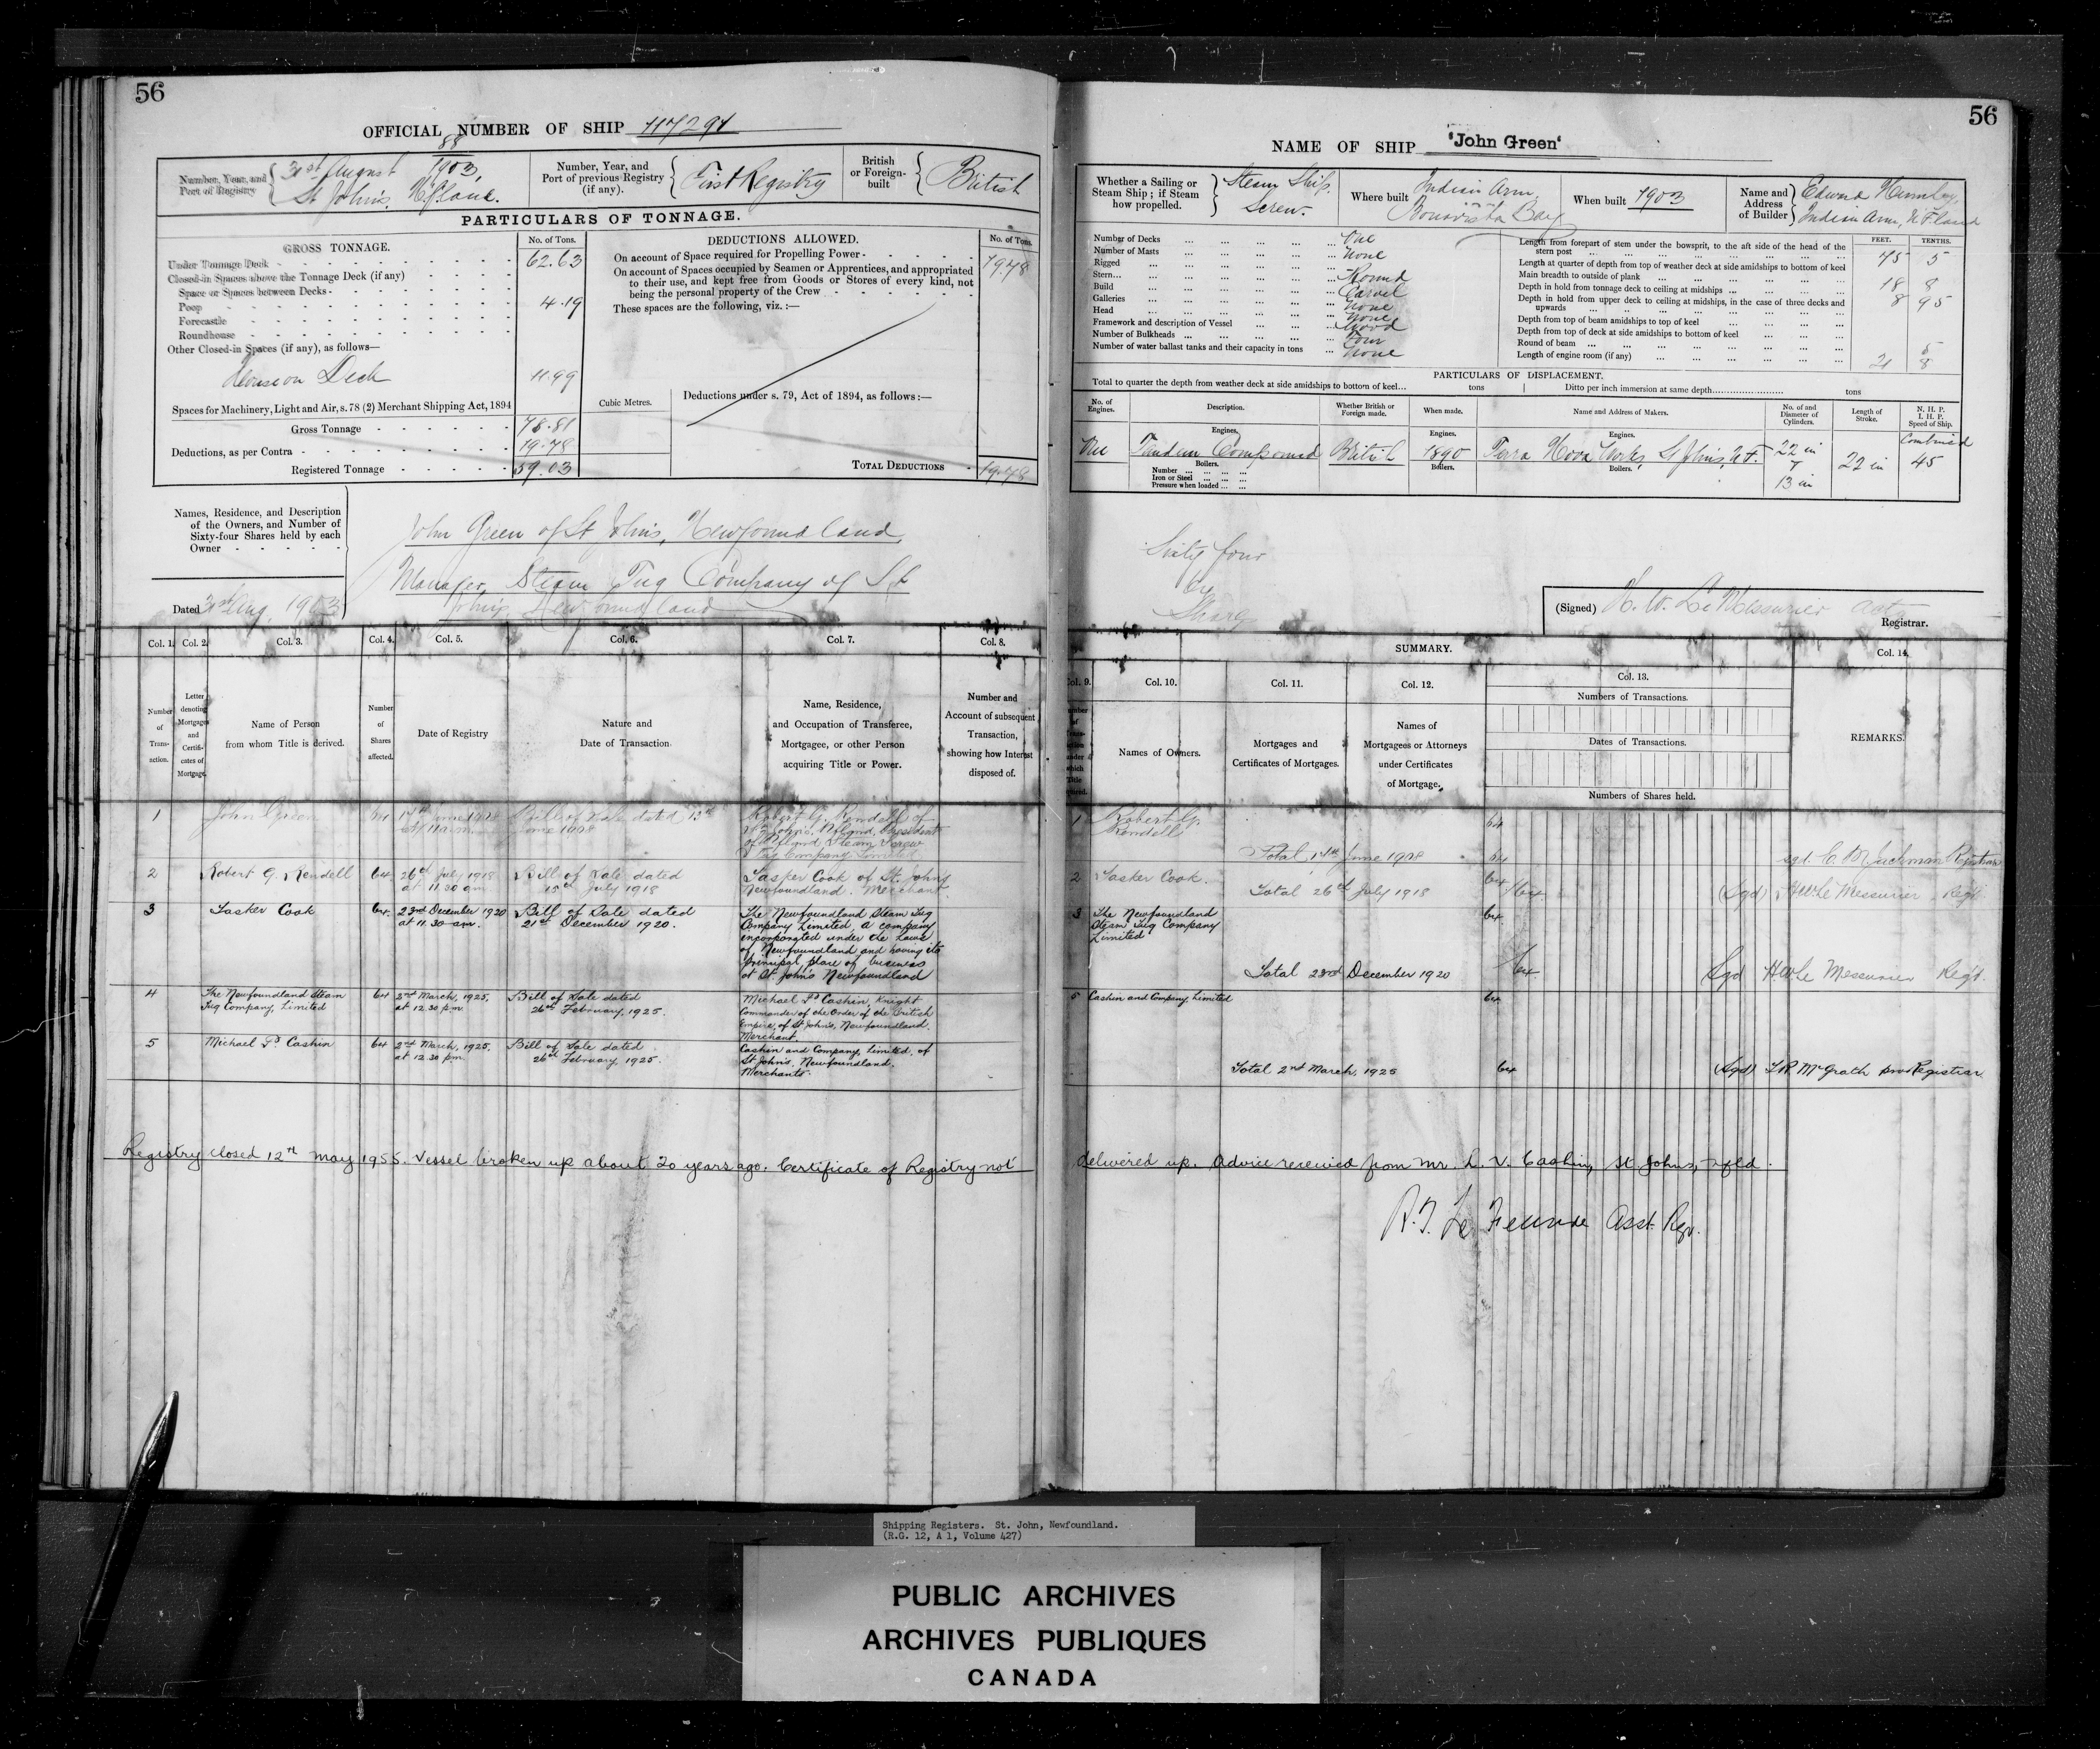 56
OFFICIAL NUMBER OF SHIP 117291
Number, Year, and Port of Registry
88
31st August 1903,
St John's, N'fland.
Number, Year, and Port of previous Registry (if any).
First Registry
British or Foreign-built
British
PARTICULARS OF TONNAGE.
GROSS TONNAGE.
No. of Tons.
Under Tonnage Deck 62.63
Closed-in Spaces above the Tonnage Deck (if any)
Space or Spaces between Decks
Poop 4.19
Forecastle
Roundhouse
Other Closed-in Spaces (if any), as follows—
House on Deck 11.99
Spaces for Machinery, Light and Air, s. 78 (2) Merchant Shipping Act, 1894
Gross Tonnage 78.81
Deductions, as per Contra 19.78
Registered Tonnage 59.03
DEDUCTIONS ALLOWED.
No. of Tons.
On account of Space required for Propelling Power 19.78
On account of Spaces occupied by Seamen or Apprentices, and appropriated
to their use, and kept free from Goods or Stores of every kind, not
being the personal property of the Crew
These spaces are the following, viz. :—
Cubic Metres.
Deductions under s. 79, Act of 1894, as follows :—
TOTAL DEDUCTIONS 19.78
Names, Residence, and Description
of the Owners, and Number of
Sixty-four Shares held by each
Owner
John Green of St John's, Newfoundland,
Manager, Steam Tug Company of St
John's, Newfoundland
Dated 31st Aug. 1903
Col. 1. Col. 2. Col. 3. Col. 4. Col. 5. Col. 6. Col. 7. Col. 8.
Number of Transaction.
Letter denoting Mortgages and Certificates of Mortgage.
Name of Person from whom Title is derived.
Number of Shares affected.
Date of Registry
Nature and Date of Transaction.
Name, Residence, and Occupation of Transferee, Mortgagee, or other Person acquiring Title or Power.
Number and Account of subsequent Transaction, showing how Interest disposed of.
1 John Green 64 17th June 1908 at 11 a.m. Bill of Sale dated 13th June 1908 Robert G. Rendell of St John's, Nfland, President of Nfland Steam Screw Tug Company Limited
2 Robert G. Rendell 64 26th July 1918 at 11.30 am Bill of Sale dated 15th July 1918 Tasker Cook of St. John's Newfoundland. Merchant
3 Tasker Cook 64. 23rd December 1920 at 11.30 am. Bill of Sale dated 21st December 1920. The Newfoundland Steam Tug Company Limited, a company incorporated under the Laws of Newfoundland and having its principal place of business at St. John's Newfoundland
4 The Newfoundland Steam Tug Company, Limited 64 2nd March, 1925. at 12.30 p.m. Bill of Sale dated 26th February, 1925. Michael P. Cashin, Knight Commander of the Order of the British Empire, of St John's, Newfoundland. Merchant.
5 Michael P. Cashin 64 2nd March, 1925. at 12.30 pm. Bill of Sale dated 26th February, 1925. Cashin and Company, Limited, of St John's, Newfoundland. Merchants.
Registry closed 12th May 1955. Vessel broken up about 20 years ago. Certificate of Registry not
56
NAME OF SHIP 'John Green'
Whether a Sailing or Steam Ship; if Steam how propelled.
Steam Ship. Screw.
Where built
Indian Arm, Bonavista Bay
When built 1903
Name and Address of Builder
Edward
Indian Arm, N.F.land
Number of Decks One
Number of Masts None
Rigged
Stern Round
Build Carvel
Galleries None
Head None
Framework and description of Vessel Wood
Number of Bulkheads Four
Number of water ballast tanks and their capacity in tons None
FEET. TENTHS.
Length from forepart of stem under the bowsprit, to the aft side of the head of the stern post 75 5
Length at quarter of depth from top of weather deck at side amidships to bottom of keel
Main breadth to outside of plank 18 8
Depth in hold from tonnage deck to ceiling at midships 8 95
Depth in hold from upper deck to ceiling at midships, in the case of three decks and upwards
Depth from top of beam amidships to top of keel
Depth from top of deck at side amidships to bottom of keel
Round of beam 5
Length of engine room (if any) 21 8
PARTICULARS OF DISPLACEMENT.
Total to quarter the depth from weather deck at side amidships to bottom of keel tons
Ditto per inch immersion at same depth tons
No. of Engines.
Description.
Whether British or Foreign made.
When made.
Name and Address of Makers.
No. of and Diameter of Cylinders.
Length of Stroke.
N. H. P. I. H. P. Speed of Ship.
Engines. Engines. Engines. Combined
One Tandem Compound British 1890 Terra Nova Works, St John's, N.F. 22 in & 13 in 22 in 45
Boilers. Boilers. Boilers.
Number
Iron or Steel
Pressure when loaded
Sixty four
(Signed) H. W. LeMessurier Actg
Registrar.
SUMMARY.
Col. 9. Col. 10. Col. 11. Col. 12. Col. 13. Col. 14.
Names of Owners.
Mortgages and Certificates of Mortgages.
Names of Mortgagees or Attorneys under Certificates of Mortgage.
Numbers of Transactions.
Dates of Transactions.
Numbers of Shares held.
REMARKS.
1 Robert G. Rendell 64
Total 17th June 1908 64 sgd. C. B. Jackman Registrar
2 Tasker Cook. 64
Total 26th July 1918 64 (Sgd) H W Le Messurier Regr.
3 The Newfoundland Steam Tug Company Limited 64
Total 23rd December 1920 64 Sgd H W Le Messurier Regr.
5 Cashin and Company, Limited 64
Total 2nd March, 1925 64 (Sgd) McGrath Registrar.
delivered up. Advice received from Mr. L. V. Cashin, St. John's, Nfld.
Asst. Rgr.
Shipping Registers. St. John, Newfoundland.
(R.G. 12, A 1, Volume 427)
PUBLIC ARCHIVES
ARCHIVES PUBLIQUES
CANADA